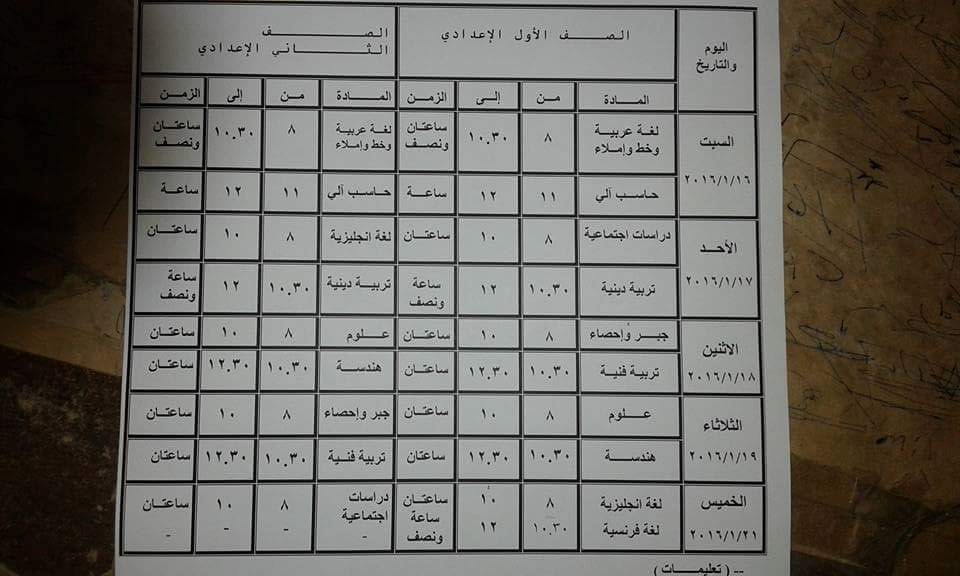 اليوم والتاريخ
الصف الأول الإعدادي
الصف الثاني الإعدادي
المادة من إلى الزمن المادة من إلى الزمن
السبت ٢٠١٦/١/١٦
لغة عربية وخط وإملاء ٨ ١٠.٣٠ ساعتان ونصف لغة عربية وخط وإملاء ٨ ١٠.٣٠ ساعتان ونصف
حاسب آلي ١١ ١٢ ساعة حاسب آلي ١١ ١٢ ساعة
الأحد ٢٠١٦/١/١٧
دراسات اجتماعية ٨ ١٠ ساعتان لغة انجليزية ٨ ١٠ ساعتان
تربية دينية ١٠.٣٠ ١٢ ساعة ونصف تربية دينية ١٠.٣٠ ١٢ ساعة ونصف
الاثنين ٢٠١٦/١/١٨
جبر وإحصاء ٨ ١٠ ساعتان علوم ٨ ١٠ ساعتان
تربية فنية ١٠.٣٠ ١٢.٣٠ ساعتان هندسة ١٠.٣٠ ١٢.٣٠ ساعتان
الثلاثاء ٢٠١٦/١/١٩
علوم ٨ ١٠ ساعتان جبر وإحصاء ٨ ١٠ ساعتان
هندسة ١٠.٣٠ ١٢.٣٠ ساعتان تربية فنية ١٠.٣٠ ١٢.٣٠ ساعتان
الخميس ٢٠١٦/١/٢١
لغة انجليزية ٨ ١٠ ساعتان دراسات اجتماعية ٨ ١٠ ساعتان
لغة فرنسية ١٠.٣٠ ١٢ ساعة ونصف - - - -
-- ( تعليمات )